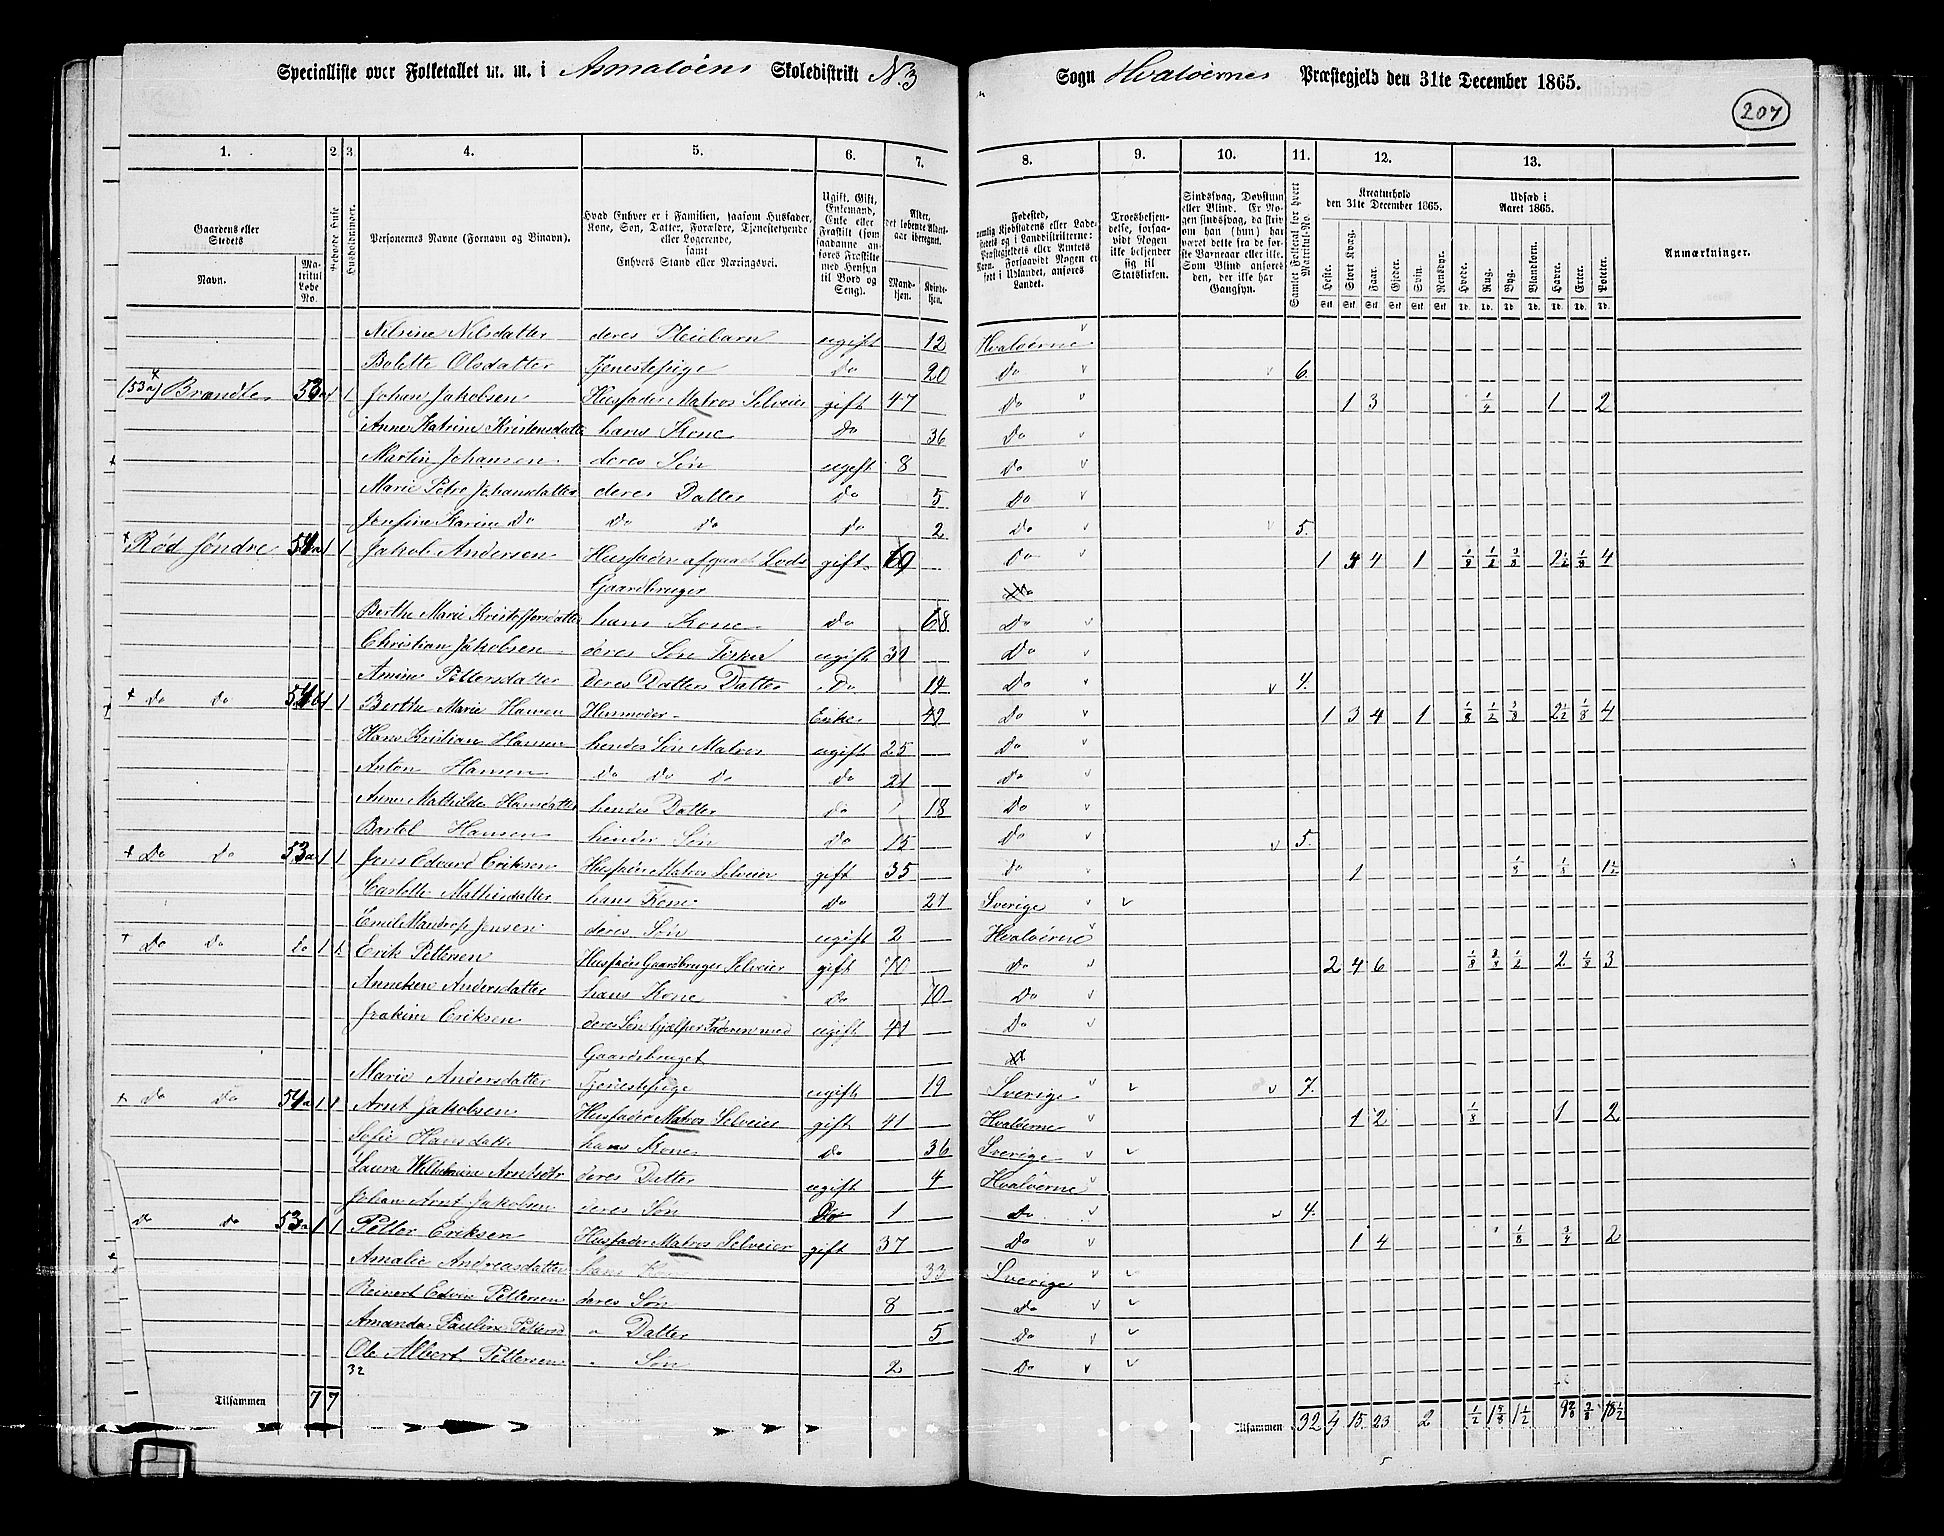 Specialliste over Folketallet m. m. i Asmaløens Skoledistrikt N. 3 Sogn Hvaløernes Præstegjeld den 31te December 1865.
207
1. 2 3. 4. 5. 6. 7. 8. 9. 10. 11. 12. 13.
Gaardens eller Stedets
Navn.
Matrikul Løbe No.
Beboede Huse
Husholdninger.
Personernes Navne (Fornavn og Binavn).
Hvad Enhver er i Familien, saasom Husfader, Kone, Søn, Datter, Forældre, Tjenestetyende eller Logerende, samt Enhvers Stand eller Næringsvei.
Ugift, Gift, Enkemand, Enke eller Fraskilt (som saadanne anføres Fraskilte med Hensyn til Bord og Seng).
Alder, det løbende Alders-aar iberegnet.
Mandkjøn. Kvindekjøn.
Troesbekjendelse, forsaavidt Nogen ikke bekjender sig til Statskirken.
Kreaturhold den 31te December 1865.
Heste. Stort Kvæg. Faar. Gjeder. Svin. Rensdyr.
Udsæd i Aaret 1865.
Hvede. Rug. Byg. Blandkorn. Havre. Erter. Poteter.
Anmærkninger.
Nilsine Nilsdatter deres Pleiebarn ugift 12 Hvaløerne
Bolette Olsdatter Tjenestepige Do 20 Do 6.
(53a) Brandte 53a 1 1 Johan Jakobsen Husfader Matros Selveier gift 47 Do 1 3 1/4 1 2
Anne Katrine Kristensdatter hans Kone Do 36 Do
Martin Johansen deres Søn ugift 8 Do
Marie Petre Johansdatter deres Datter Do 5 Do
Josefine Karine Do Do Do Do 2 Do 5.
Rød søndre 54a 1 1 Jakob Andersen Husfader Lods gift Do 1 4 1 1/8 1/2 3/8 2 1/2 1/8 4
Gaardbruger
Berthe Marie Kristoffersdatter hans Kone Do 68 Do
Christian Jakobsen deres Søn Fisker ugift Do
Amine Pettersdatter deres Datters Datter Do 14 Do 4.
Do Do 54b 1 1 Berthe Marie Hansen Husmoder Enke 49 Do 1 3 4 1 1/8 1/2 3/8 2 1/2 1/8 4
Hans Kristian Hansen hendes Søn Matros ugift 25 Do
Anton Hansen Do Do Do Do 21 Do
Anne Mathilde Hansdatter hendes Datter Do 18 Do
Bartol Hansen hendes Søn Do 15 Do 5.
Do Do 53a 1 1 Jens Edvard Eriksen Husfader Matros Selveier gift 35 Do 1 1/8 1 1/2
Carlotte Mathisdatter hans Kone Do 27 Sverige
Emil Mandrop Jensen deres Søn ugift 2 Hvaløerne
Do Do Do 1 Erik Pettersen Husfader Gaardbruger Selveier gift 70 Do 2 4 6 1/8 3/4 1/2 2 1/8 3
Anneken Andersdatter hans Kone Do 70 Do
Joakim Eriksen deres Søn hjælper Faderen med ugift 41 Do
Gaardsbruget
Marie Andersdatter Tjenestepige ugift 19 Sverige 7.
Do Do 54a 1 1 Arnt Jakobsen Husfader Matros Selveier gift 41 Hvaløerne 1 2 1/8 1 2
Sofie Hansdatter hans Kone Do 36 Sverige
Laura Wilhelmine Arntsdtr deres Datter ugift 4 Hvaløerne
Johan Arnt Jakobsen deres Søn Do 1 Do 4.
Do Do 53a 1 1 Petter Eriksen Husfader Matros Selveier gift 37 Do 1 4 1/8 3/4 2
Amalie Andreasdatter hans Kone 33 Sverige
Reinert Edvin Pettersen deres Søn 8 Do
Amanda Pauline Petters " Datter 5 Do
Ole Albert Pettersen " Søn 2 Do
32
Tilsammen 7 7 Tilsammen 32 4 15 23 2 1/2 1 5/8 1 1/2 9 2/8 18 1/2